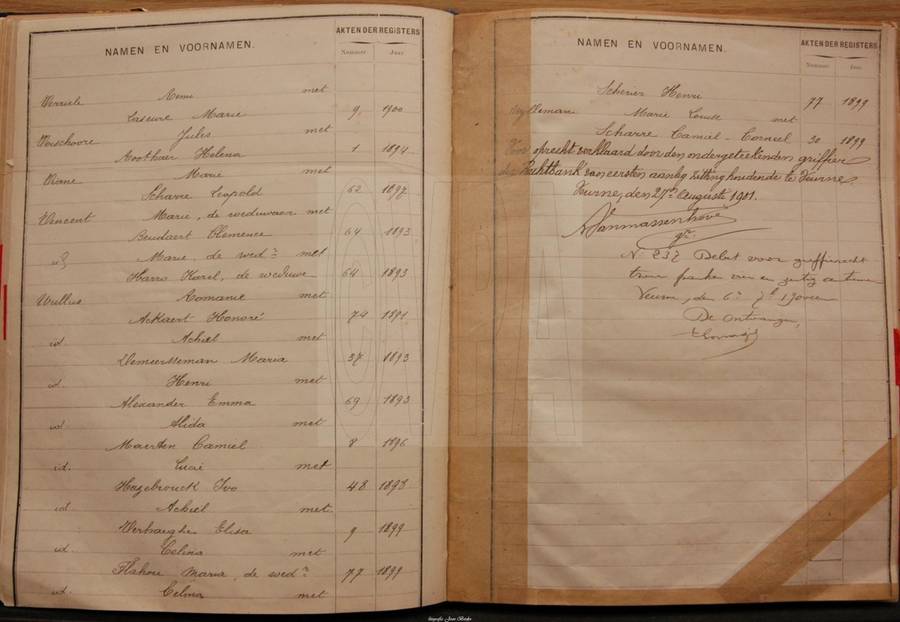 NAMEN EN VOORNAMEN.
AKTEN DER REGISTERS
Nummer Jaar
Remi met
Lascure Marie 9 1900
Verschoore Jules met
Noothaer Helena 1 1894
Marie met
Scharre Leopold 62 1892
Vincent Marie, de weduwaar met
Beudaert Clemence 64 1893
id Marie, de wed.ᵉ met
Harro Karel, de weduwe 64 1893
Wullus Romanie met
Ackaert Honoré 74 1891
id Achiel met
Demeersseman Maria 37 1893
id. Henri met
Alexander Emma 69 1893
id Alida met
Maerten Camiel 8 1896
id. Lucie met
Hazebrouck Ivo 48 1898
id Achiel met
Verhaeghe Elisa 9 1899
id. Celina met
Maria, de wed.ᵉ 77 1899
id. Celina met
NAMEN EN VOORNAMEN.
AKTEN DER REGISTERS
Nummer Jaar
Scherer Henri 77 1899
Wylleman Marie Louise met
Scharre Camiel-Corneel 30 1899
Voor oprecht verklaard door den ondergeteekenden griffier
der Rechtbank van eersten aanleg zitting houdende te Veurne.
Veurne, den 27ⁿ Augusti 1901.
Vanmassenhove
gr.
N. 237 Debet voor griffierecht
franken en
Veurne, den 6
De Ontvanger,